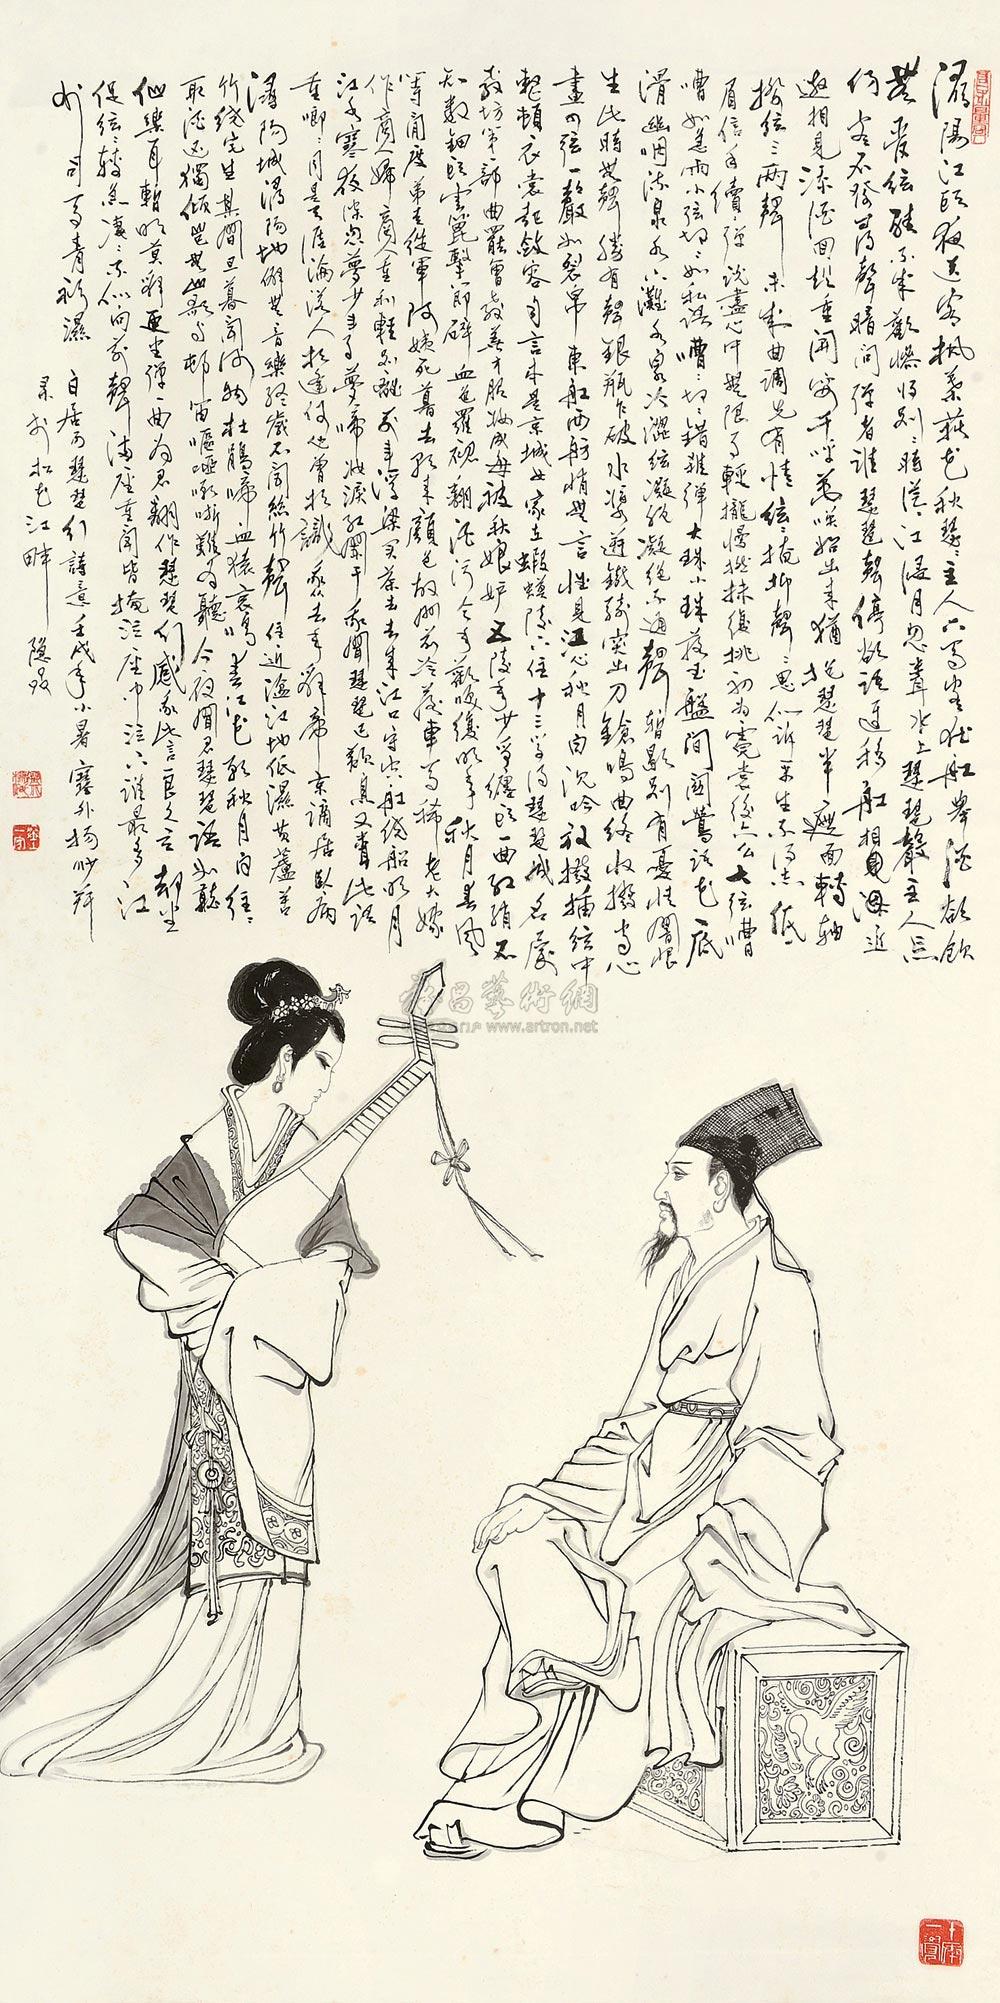 潯陽江頭夜送客楓葉荻花秋瑟〻主人下馬客在舡舉酒欲飲
無管絃醉不成歡慘將別〻時茫〻江浸月忽聞水上琵琶聲主人忘
歸客不發尋聲暗問彈者誰琵琶聲停欲語遲移舡相近
邀相見添酒回燈重開宴千呼萬喚始出來猶抱琵琶半遮面轉軸
撥絃三兩聲未成曲調先有情絃〻掩抑聲〻思似訴平生不得志低
眉信手續〻彈說盡心中無限事輕攏慢撚抹復挑初為霓裳後六么大絃嘈
嘈如急雨小絃切〻如私語嘈〻切〻錯雜彈大珠小珠落玉盤間關鶯語花底
滑幽咽流泉水下灘水泉冷澀絃凝絕凝絕不通聲暫歇別有憂愁闇恨
生此時無聲勝有聲銀瓶乍破水漿迸鐵騎突出刀鎗鳴曲終收撥當心
畫四絃一聲如裂帛東舡西舫悄無言惟見江心秋月白沉吟放撥插絃中
整頓衣裳起斂容自言本是京城女家在蝦蟆陵下住十三學得琵琶成名屬
教坊第一部曲罷曾教善才服妝成每被秋娘妒五陵年少爭纏頭一曲紅綃不
知數鈿頭雲篦擊節碎血色羅裙翻酒污今年歡笑復明年秋月春風
等閒度弟走從軍阿姨死暮去朝來顏色故門前冷落車馬稀老大嫁
作商人婦商人重利輕別離前月浮梁買茶去去來江口守空舡繞船明月
江水寒夜深忽夢少年事夢啼妝淚紅闌干我聞琵琶已歎息又聞此語
重唧〻同是天涯淪落人相逢何必曾相識我從去年辭帝京謫居臥病
潯陽城潯陽地僻無音樂終歲不聞絲竹聲住近湓江地低濕黃蘆苦
竹繞宅生其間旦暮聞何物杜鵑啼血猿哀鳴春江花朝秋月夜往〻
取酒還獨傾豈無山歌與村笛嘔啞嘲哳難為聽今夜聞君琵琶語如聽
仙樂耳暫明莫辭更坐彈一曲為君翻作琵琶行感我此言良久立卻坐
促絃〻轉急凄〻不似向前聲滿座重聞皆掩泣座中泣下誰最多江
州司馬青衫濕
白居易琵琶行詩意壬戌年小暑塞外
录於松花江畔
www.artron.net